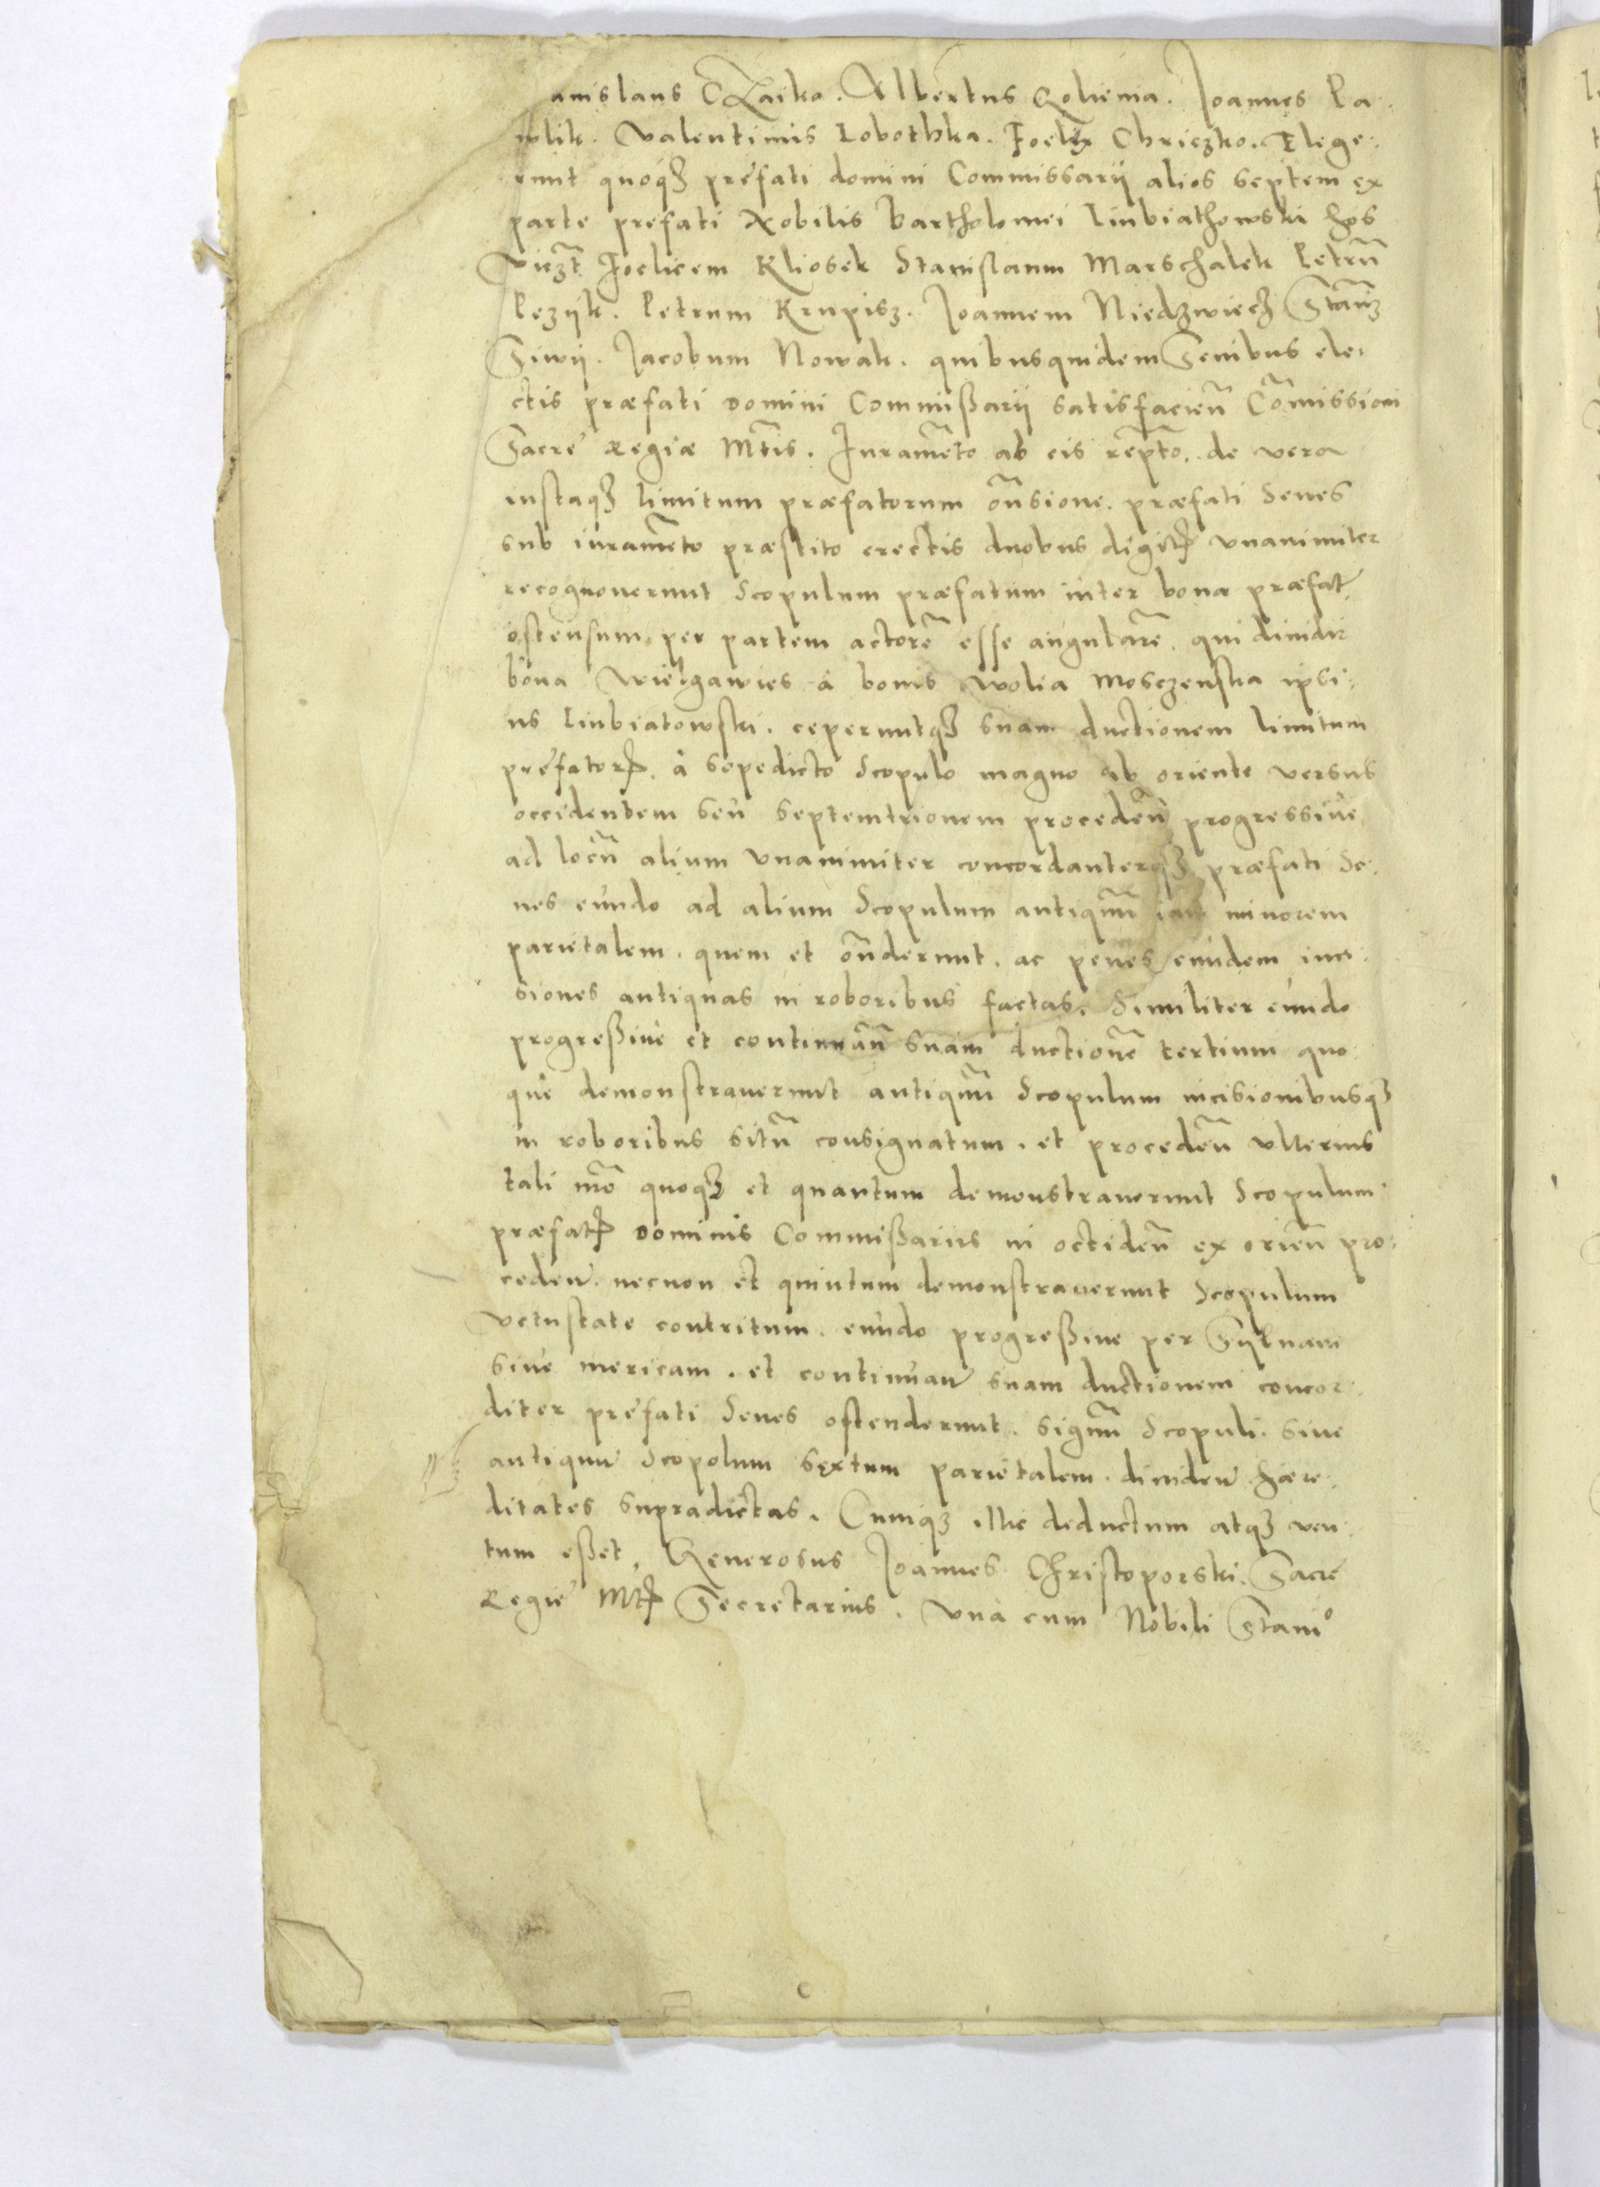 anislaus Czaiko. Albertus Goliema. Joannes Pa-
wlik. Valentinus Lobothka. Foelix Chriczko. Elege-
runt quoq₃ prefati domini Commissarij alios septem ex
parte prefati Nobilis Bartholomei Liubiathowski hos
Vicz̃t. Foelicem Kliosek Stanislaum Marschalek Petrũ
Pezyk. Petrum Krupisz. Joannem Niedzwiecz Stãnis
Siwy. Jacobum Nowak. quibusquidem Senibus ele-
ctis præfati domini Commißarij satisfacieñ Cõmissioni
Sacre Regiæ Mtis. Juramẽto ab eis rep̃to. de vera
iustaq₃ limitum præfatorum oñsione. præfati Senes
sub iuramẽto præstito erectis duobus digitꝭ vnanimiter
recognouerunt Scopulum præfatum inter bona præfat
ostensum per partem actorẽ esse angularẽ. qui diuidit
bona Wielgawies à bonis Wolia Mosczenska ipsi-
us Liubiatowski. ceperuntq₃ suam ductionem limitum
prefatorꝝ. à sepedicto Scopulo magno ab oriente versus
occidentem seu septemtrionem procedeñ progressiue
ad locũ alium vnanimiter concordanterq₃ præfati Se-
nes eundo ad alium Scopulum antiquũ iam minorem
parietalem. quem et oñderunt. ac penes eundem inci-
siones antiquas in roboribus factas. Similiter eundo
progreßiue et continuañ suam ductionẽ tertium quo-
que demonstrauerunt antiquũ Scopulum incisionibusq₃
in roboribus sitũ consignatum. et procedeñ vlterius
tali mõ quoq₃ et quantum demonstrauerunt Scopulum
præfatꝭ dominis Commißarijs in occideñ ex orieñ pro-
cedeñ. necnon et quintum demonstrauerunt Scopulum
vetustate contritum. eundo progreßiue per Syluam
siue mericam. et continuañ suam ductionem concor-
diter prefati Senes ostenderunt. signũ Scopuli. siue
antiquũ Scopolum sextum parietalem. diuideñ hære-
ditates supradictas. Cumq₃ illic deductum atq₃ ven-
tum eßet, Generosus Joannes Christoporski. Sacre
Regie Mtꝭ Secretarius. vna cum Nobili Stanio